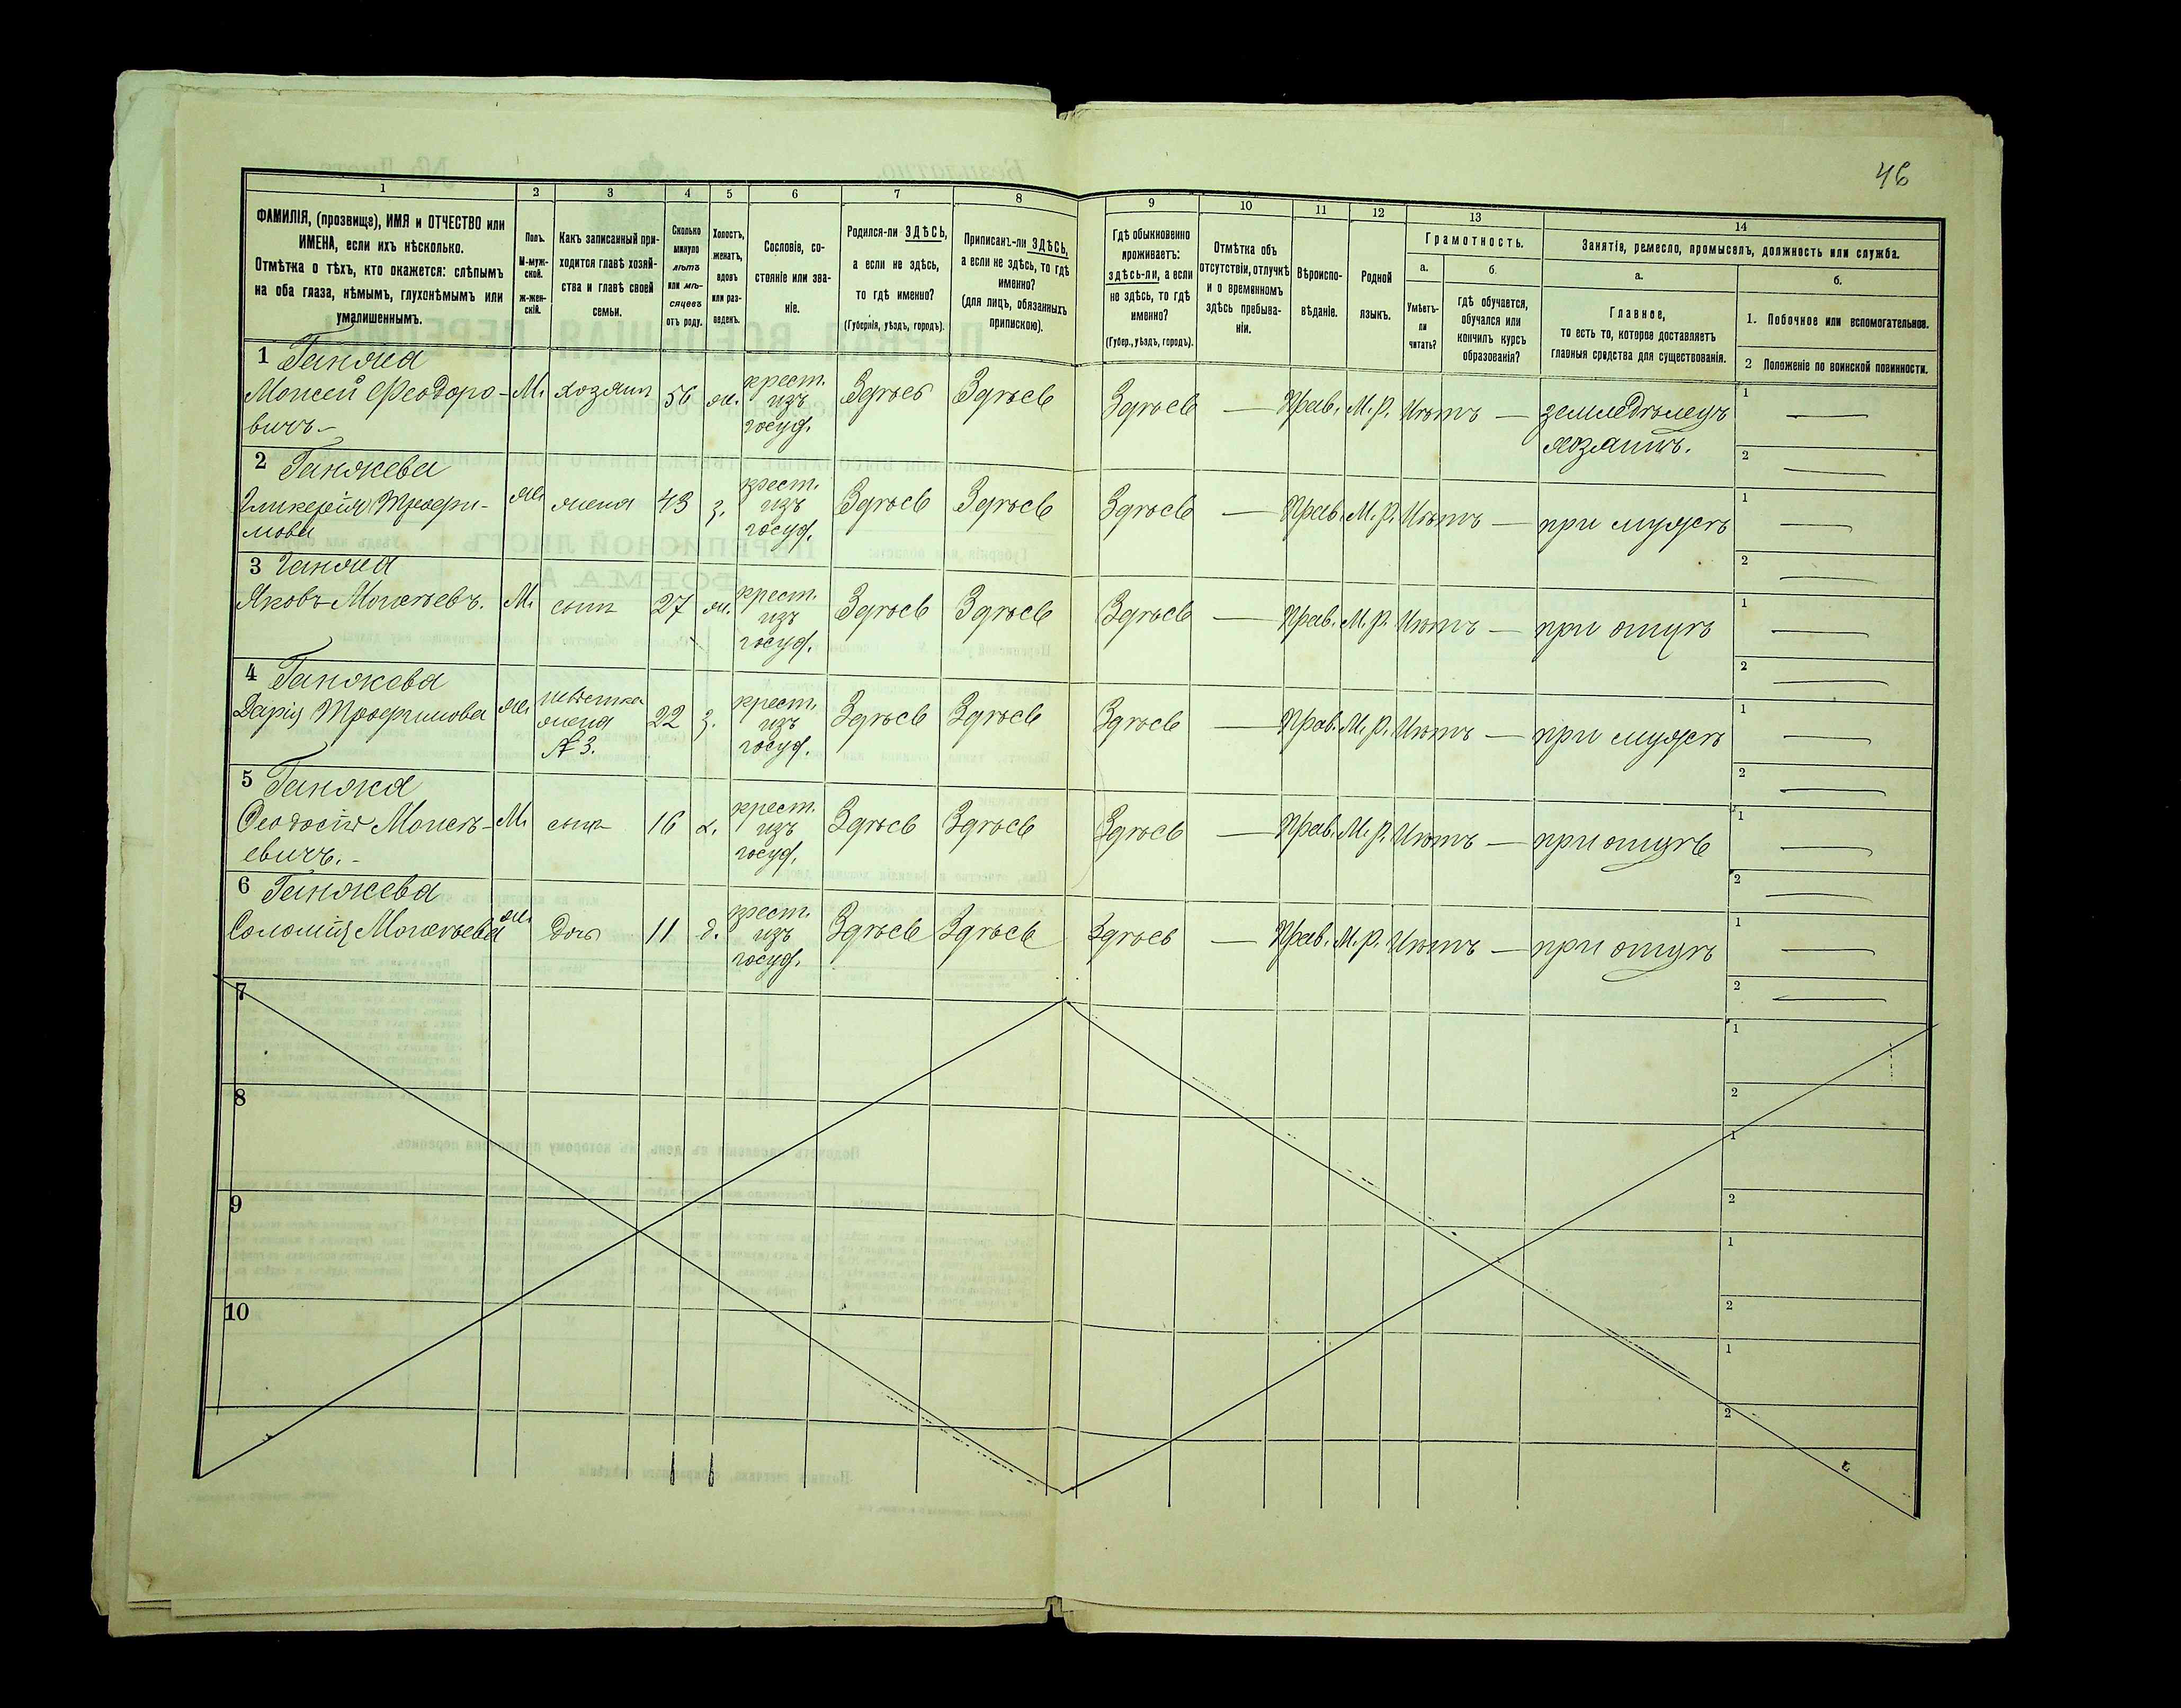 46
1 2 3 4 5 6 7 8 9 10 11 12 13 14
ФАМИЛІЯ, (прозвище), ИМЯ и ОТЧЕСТВО или
ИМЕНА, если ихъ нѣсколько.
Отмѣтка о тѣхъ, кто окажется: слѣпымъ
на оба глаза, нѣмымъ, глухонѣмымъ или
умалишеннымъ.
Полъ.
М-муж-
ской.
ж-жен-
скій.
Какъ записанный при-
ходится главѣ хозяй-
ства и главѣ своей
семьи.
Сколько
минуло
лѣтъ
или мѣ-
сяцевъ
отъ роду.
Холостъ,
женатъ,
вдовъ
или раз-
веденъ.
Сословіе, со-
стояніе или зва-
ніе.
Родился-ли ЗДѢСЬ,
а если не здѣсь,
то гдѣ именно?
(Губернія, уѣздъ, городъ).
Приписанъ-ли ЗДѢСЬ,
а если не здѣсь, то гдѣ
именно?
(для лицъ, обязанныхъ
припискою).
Гдѣ обыкновенно
проживаетъ:
здѣсь-ли, а если
не здѣсь, то гдѣ
именно?
(Губер., уѣздъ, городъ).
Отмѣтка объ
отсутствіи, отлучкѣ
и о временномъ
здѣсь пребыва-
ніи.
Вѣроиспо-
вѣданіе.
Родной
языкъ.
Грамотность.
а.
Умѣетъ-
ли
читать?
б.
гдѣ обучается,
обучался или
кончилъ курсъ
образованія?
Занятіе, ремесло, промыселъ, должность или служба.
а.
Главное,
то есть то, которое доставляетъ
главныя средства для существованія.
б.
1. Побочное или вспомогательное.
2 Положеніе по воинской повинности.
1 Ганжа
Моисей Феодоро- М. хозяин 56 ж. крест. Здѣсь Здѣсь Здѣсь — Прав. М. р. Нѣтъ — земледѣлецъ 1 —
вичъ.- изъ хозяинъ. 2 —
госуд.
2 Ганжева
Гликерія Трофи- ж. жена 43 з. крест. Здѣсь Здѣсь Здѣсь — Прав. М. р. Нѣтъ — при мужѣ 1 —
мова изъ 2 —
госуд.
3 Ганжа
Яковъ Моисѣевъ. М. сынъ 27 ж. крест. Здѣсь Здѣсь Здѣсь — Прав. М. р. Нѣтъ — при отцѣ 1 —
изъ 2 —
госуд.
4 Ганжева
Дарія Трофимова ж. невѣстка 22 з. крест. Здѣсь Здѣсь Здѣсь — Прав. М. р. Нѣтъ — при мужѣ 1 —
жена изъ 2 —
№ 3. госуд.
5 Ганжа
Феодосій Моисѣ- М. сынъ 16 х. крест. Здѣсь Здѣсь Здѣсь — Прав. М. р. Нѣтъ — при отцѣ 1 —
евичъ.- изъ 2 —
госуд.
6 Ганжева
Соломія Моисѣева ж. дочь 11 д. крест. Здѣсь Здѣсь Здѣсь — Прав. М. р. Нѣтъ — при отцѣ 1 —
изъ 2 —
госуд.
7 1
2
8 1
2
9 1
2
10 1
2